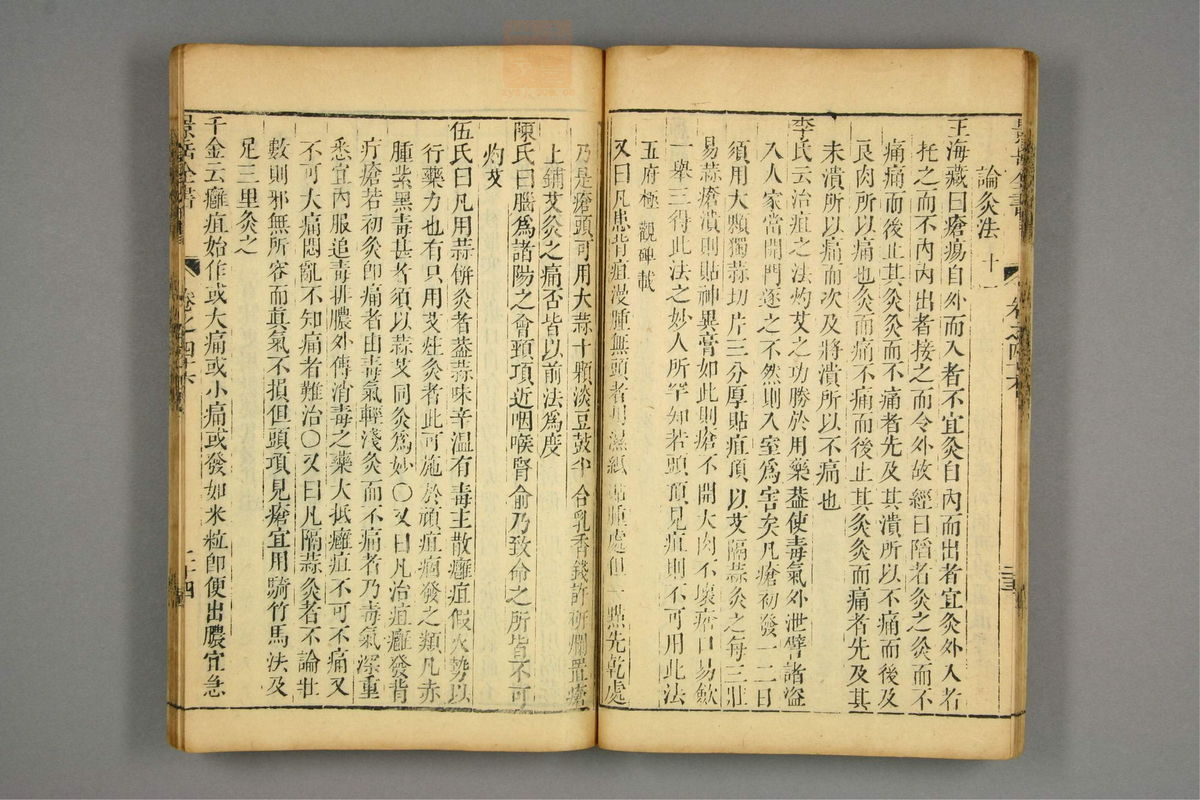 論灸法 十一
王海藏曰瘡瘍自外而入者不宜灸自內而出者宜灸外入者
托之而不內內出者接之而令外故經曰陷者灸之灸而不
痛痛而後止其灸灸而不痛者先及其潰所以不痛而後及
良肉所以痛也灸而痛不痛而後止其灸灸而痛者先及其
未潰所以痛而次及將潰所以不痛也
李氏云治疽之法灼艾之功勝於用藥葢使毒氣外泄譬諸盜
入人家當開門逐之不然則入室爲害矣凡瘡初發一二日
須用大顆獨蒜切片三分厚貼疽頂以艾隔蒜灸之每三壯
易蒜瘡潰則貼神異膏如此則瘡不開大肉不壞瘡口易斂
一舉三得此法之妙人所罕知若頭頂見疽則不可用此法
五府極觀碑載
又曰凡患背疽漫腫無頭者用濕紙貼腫處但一點先乾處
乃是瘡頭可用大蒜十顆淡豆豉半合乳香錢許研爛置瘡
上鋪艾灸之痛否皆以前法爲度
陳氏曰腦爲諸陽之會頸項近咽喉腎俞乃致命之所皆不可
灼艾
伍氏曰凡用蒜餅灸者葢蒜味辛温有毒主散癰疽假火勢以
行藥力也有只用艾炷灸者此可施於頑疽痼發之類凡赤
腫紫黑毒甚者須以蒜艾同灸爲妙〇又曰凡治疽癰發背
疔瘡若初灸卽痛者由毒氣輕淺灸而不痛者乃毒氣深重
悉宜內服追毒排膿外傅消毒之藥大抵癰疽不可不痛又
不可大痛悶亂不知痛者難治〇又曰凡隔蒜灸者不論壯
數則邪無所容而眞氣不損但頭項見瘡宜用騎竹馬法及
足三里灸之
千金云癰疽始作或大痛或小痛或發如米粒卽便出膿宜急
景岳全書 卷之四十六 二十四